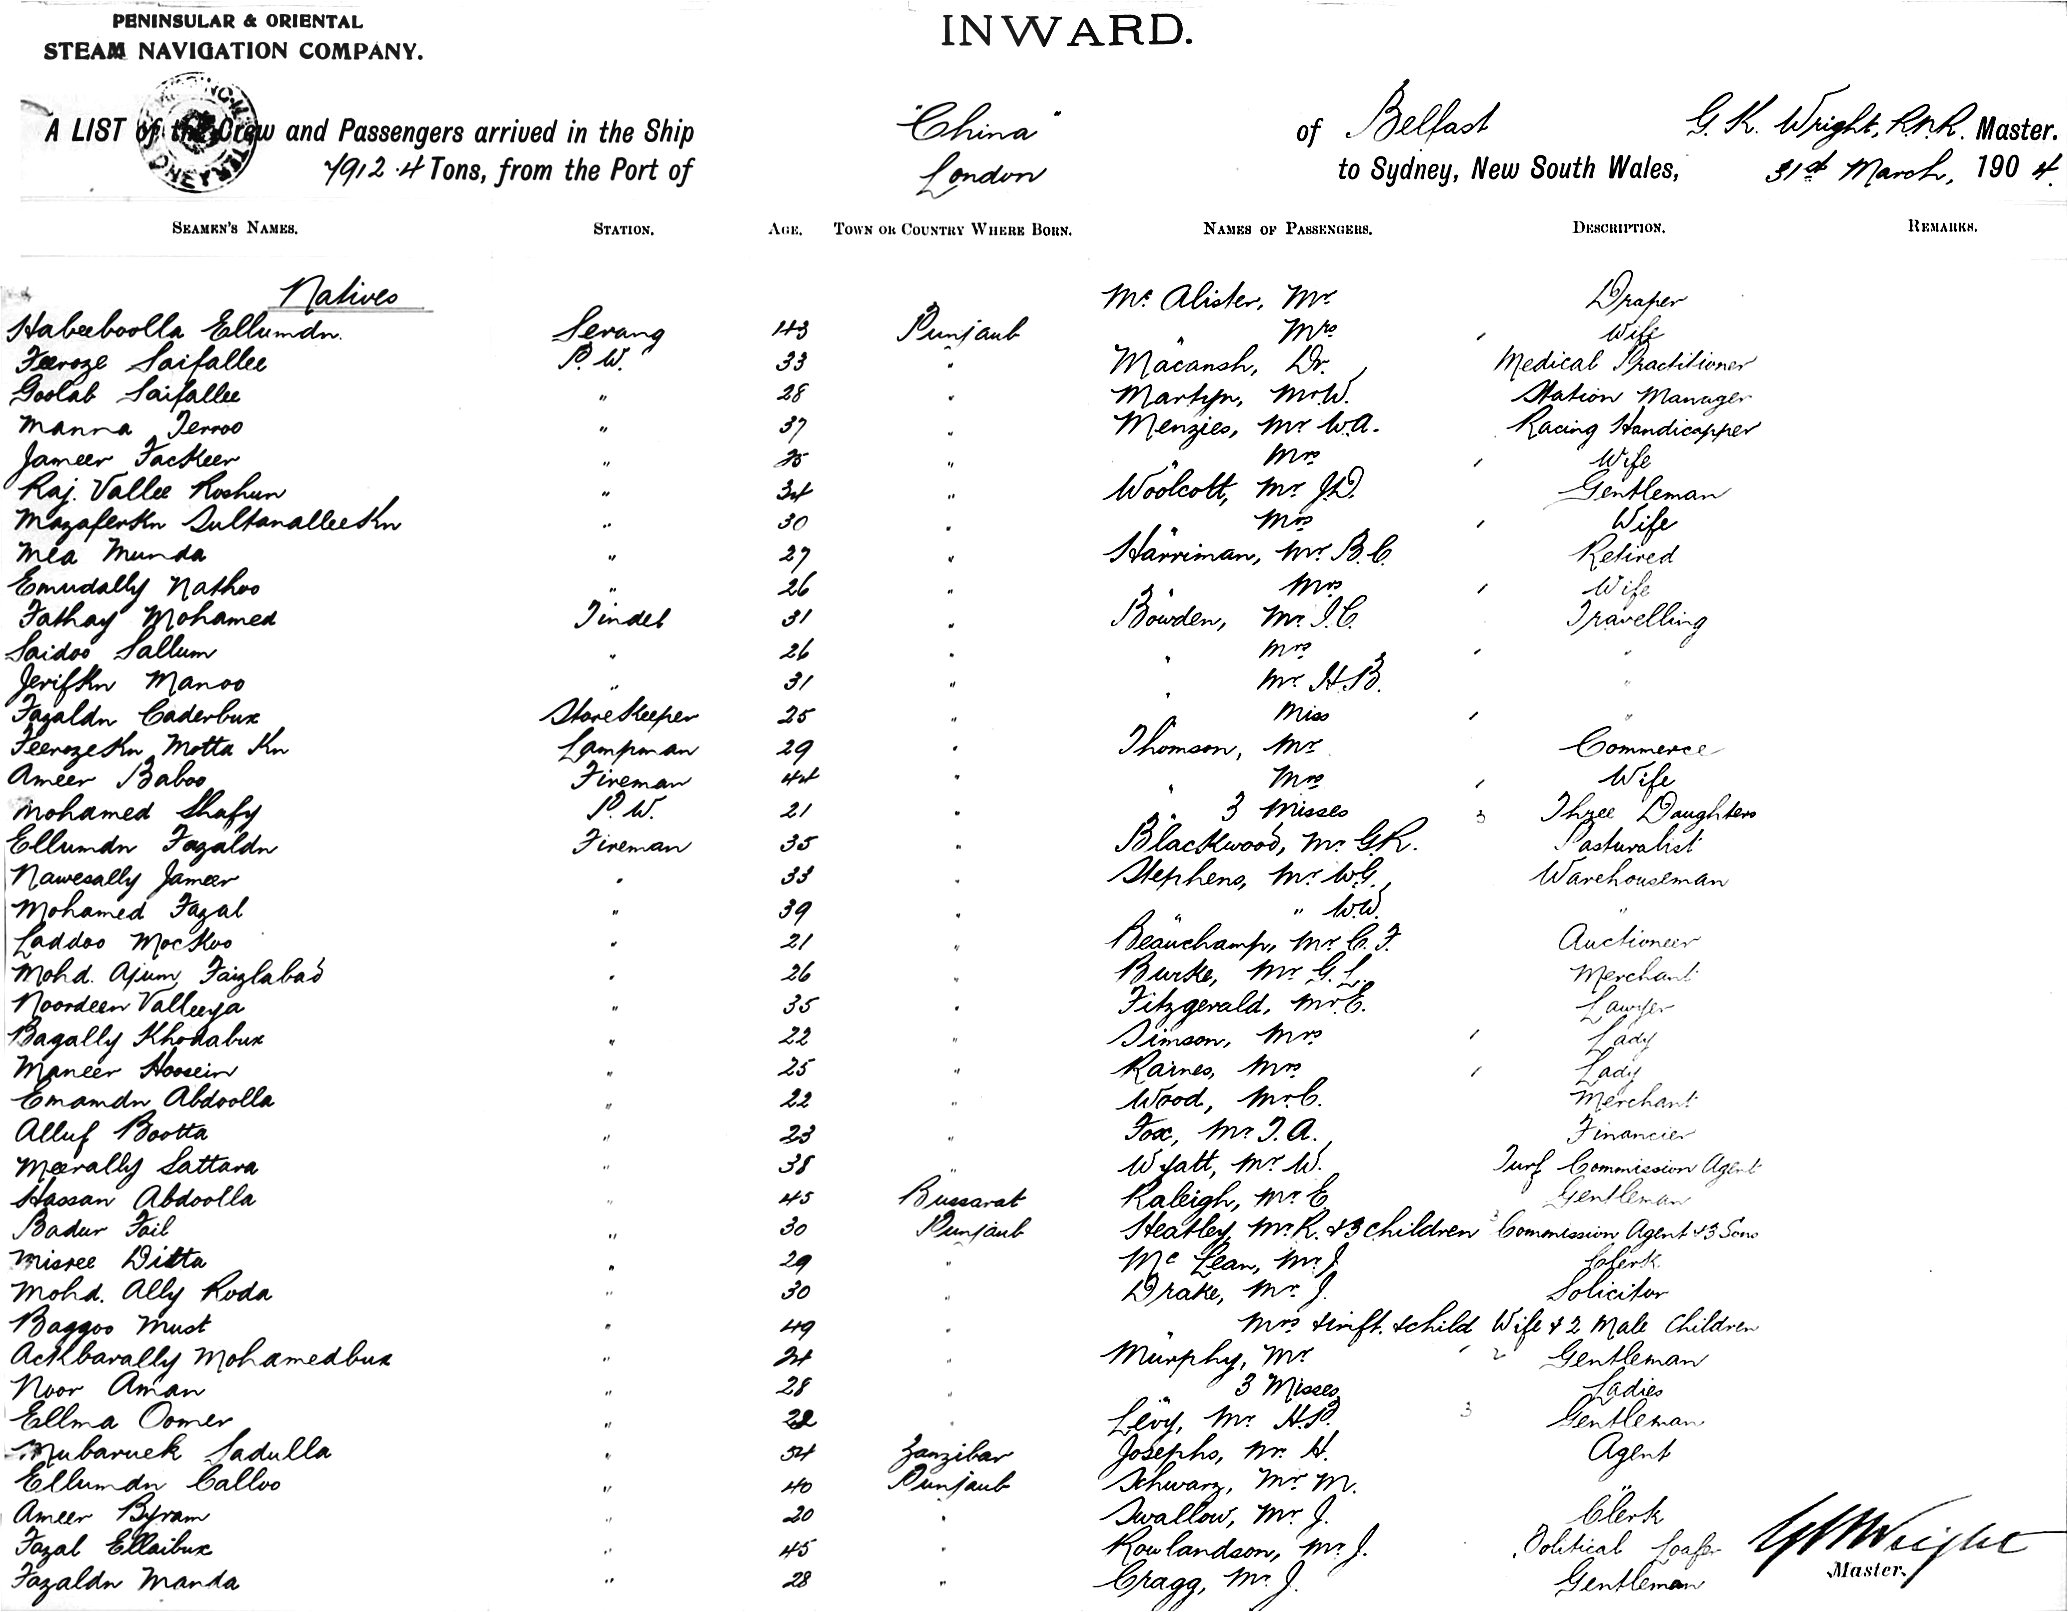 PENINSULAR & ORIENTAL
STEAM NAVIGATION COMPANY.
INWARD.
A LIST of the Crew and Passengers arrived in the Ship "China" of Belfast G. K. Wright, R.N.R. Master.
7912.4 Tons, from the Port of London to Sydney, New South Wales, 31st March, 1904.
SEAMEN'S NAMES. STATION. AGE. TOWN OR COUNTRY WHERE BORN. NAMES OF PASSENGERS. DESCRIPTION. REMARKS.
Natives Mc Alister, Mr Draper
Habeeboolla Ellumdn. Serang 43 Punjaub " Mrs ' Wife
Feeroze Saifallee P.W. 33 " Macansh, Dr. Medical Practitioner
Goolab Saifallee " 28 " Martyn, Mr W. Station Manager
Manna Terroo " 37 " Menzies, Mr W.A. Racing Handicapper
Jameer Fackeer " 25 " " Mrs ' Wife
Raj. Vallee Roshun " 34 " Woolcott, Mr J.D. Gentleman
Mazaferkn Sultanalleekn " 30 " " Mrs ' Wife
Mea Munda " 27 " Harriman, Mr B.C. Retired
Emudally Nathoo " 26 " " Mrs ' Wife
Fathay Mohamed Tindel 31 " Bowden, Mr I.C. Travelling
Saidoo Sallum " 26 " " Mrs ' "
Jerifkn Manoo " 31 " " Mr H.B. "
Fazaldn Caderbux Storekeeper 25 " " Miss ' "
Feerozekn Motta Kn Lampman 29 " Thomson, Mr Commerce
Ameer Baboo Fireman 44 " " Mrs ' Wife
Mohamed Shafy P.W. 21 " " 3 Misses 3 Three Daughters
Ellumdn Fazaldn Fireman 35 " Blackwood, Mr G.R. Pasturalist
Nawesally Jameer " 33 " Stephens, Mr W.G. Warehouseman
Mohamed Fazal " 39 " " " W.W. "
Laddoo Mockoo " 21 " Beauchamp, Mr C.F. Auctioneer
Mohd. Ajum Faizlabad " 26 " Burke, Mr G.L. Merchant
Noordeen Valleeya " 35 " Fitzgerald, Mr E. Lawyer
Bagally Khodabux " 22 " Simson, Mrs ' Lady
Maneer Hoosein " 25 " Raines, Mrs ' Lady
Emamdn Abdoolla " 22 " Wood, Mr C. Merchant
Alluf Bootta " 23 " Fox, Mr T.A. Financier
Meerally Sattara " 38 " Wyatt, Mr W. Turf Commission Agent
Hassan Abdoolla " 45 Bussarat Raleigh, Mr E Gentleman
Badur Fail " 30 Punjaub Heatley Mr R. & 3 children 3 Commission Agent & 3 Sons
Misree Ditta " 29 " Mc Lean, Mr J. Clerk
Mohd. Ally Roda " 30 " Drake, Mr J. Solicitor
Baggoo Must " 49 " " Mrs & inft. & child Wife & 2 Male Children
Ackbarally Mohamedbux " 24 " Murphy, Mr ' 2 Gentleman
Noor Aman " 28 " " 3 Misses Ladies
Ellma Oomer " 22 " Levy, Mr H.P. 3 Gentleman
Mubaruek Sadulla " 54 Zanzibar Josephs, Mr H. Agent
Ellumdn Calloo " 40 Punjaub Schwarz, Mr M. "
Ameer Byram " 20 " Swallow, Mr J. Clerk
Fazal Ellaibux " 45 " Rowlandson, Mr J. Political Loafer
Fazaldn Manda " 28 " Cragg, Mr J. Gentleman
GKWright
Master.